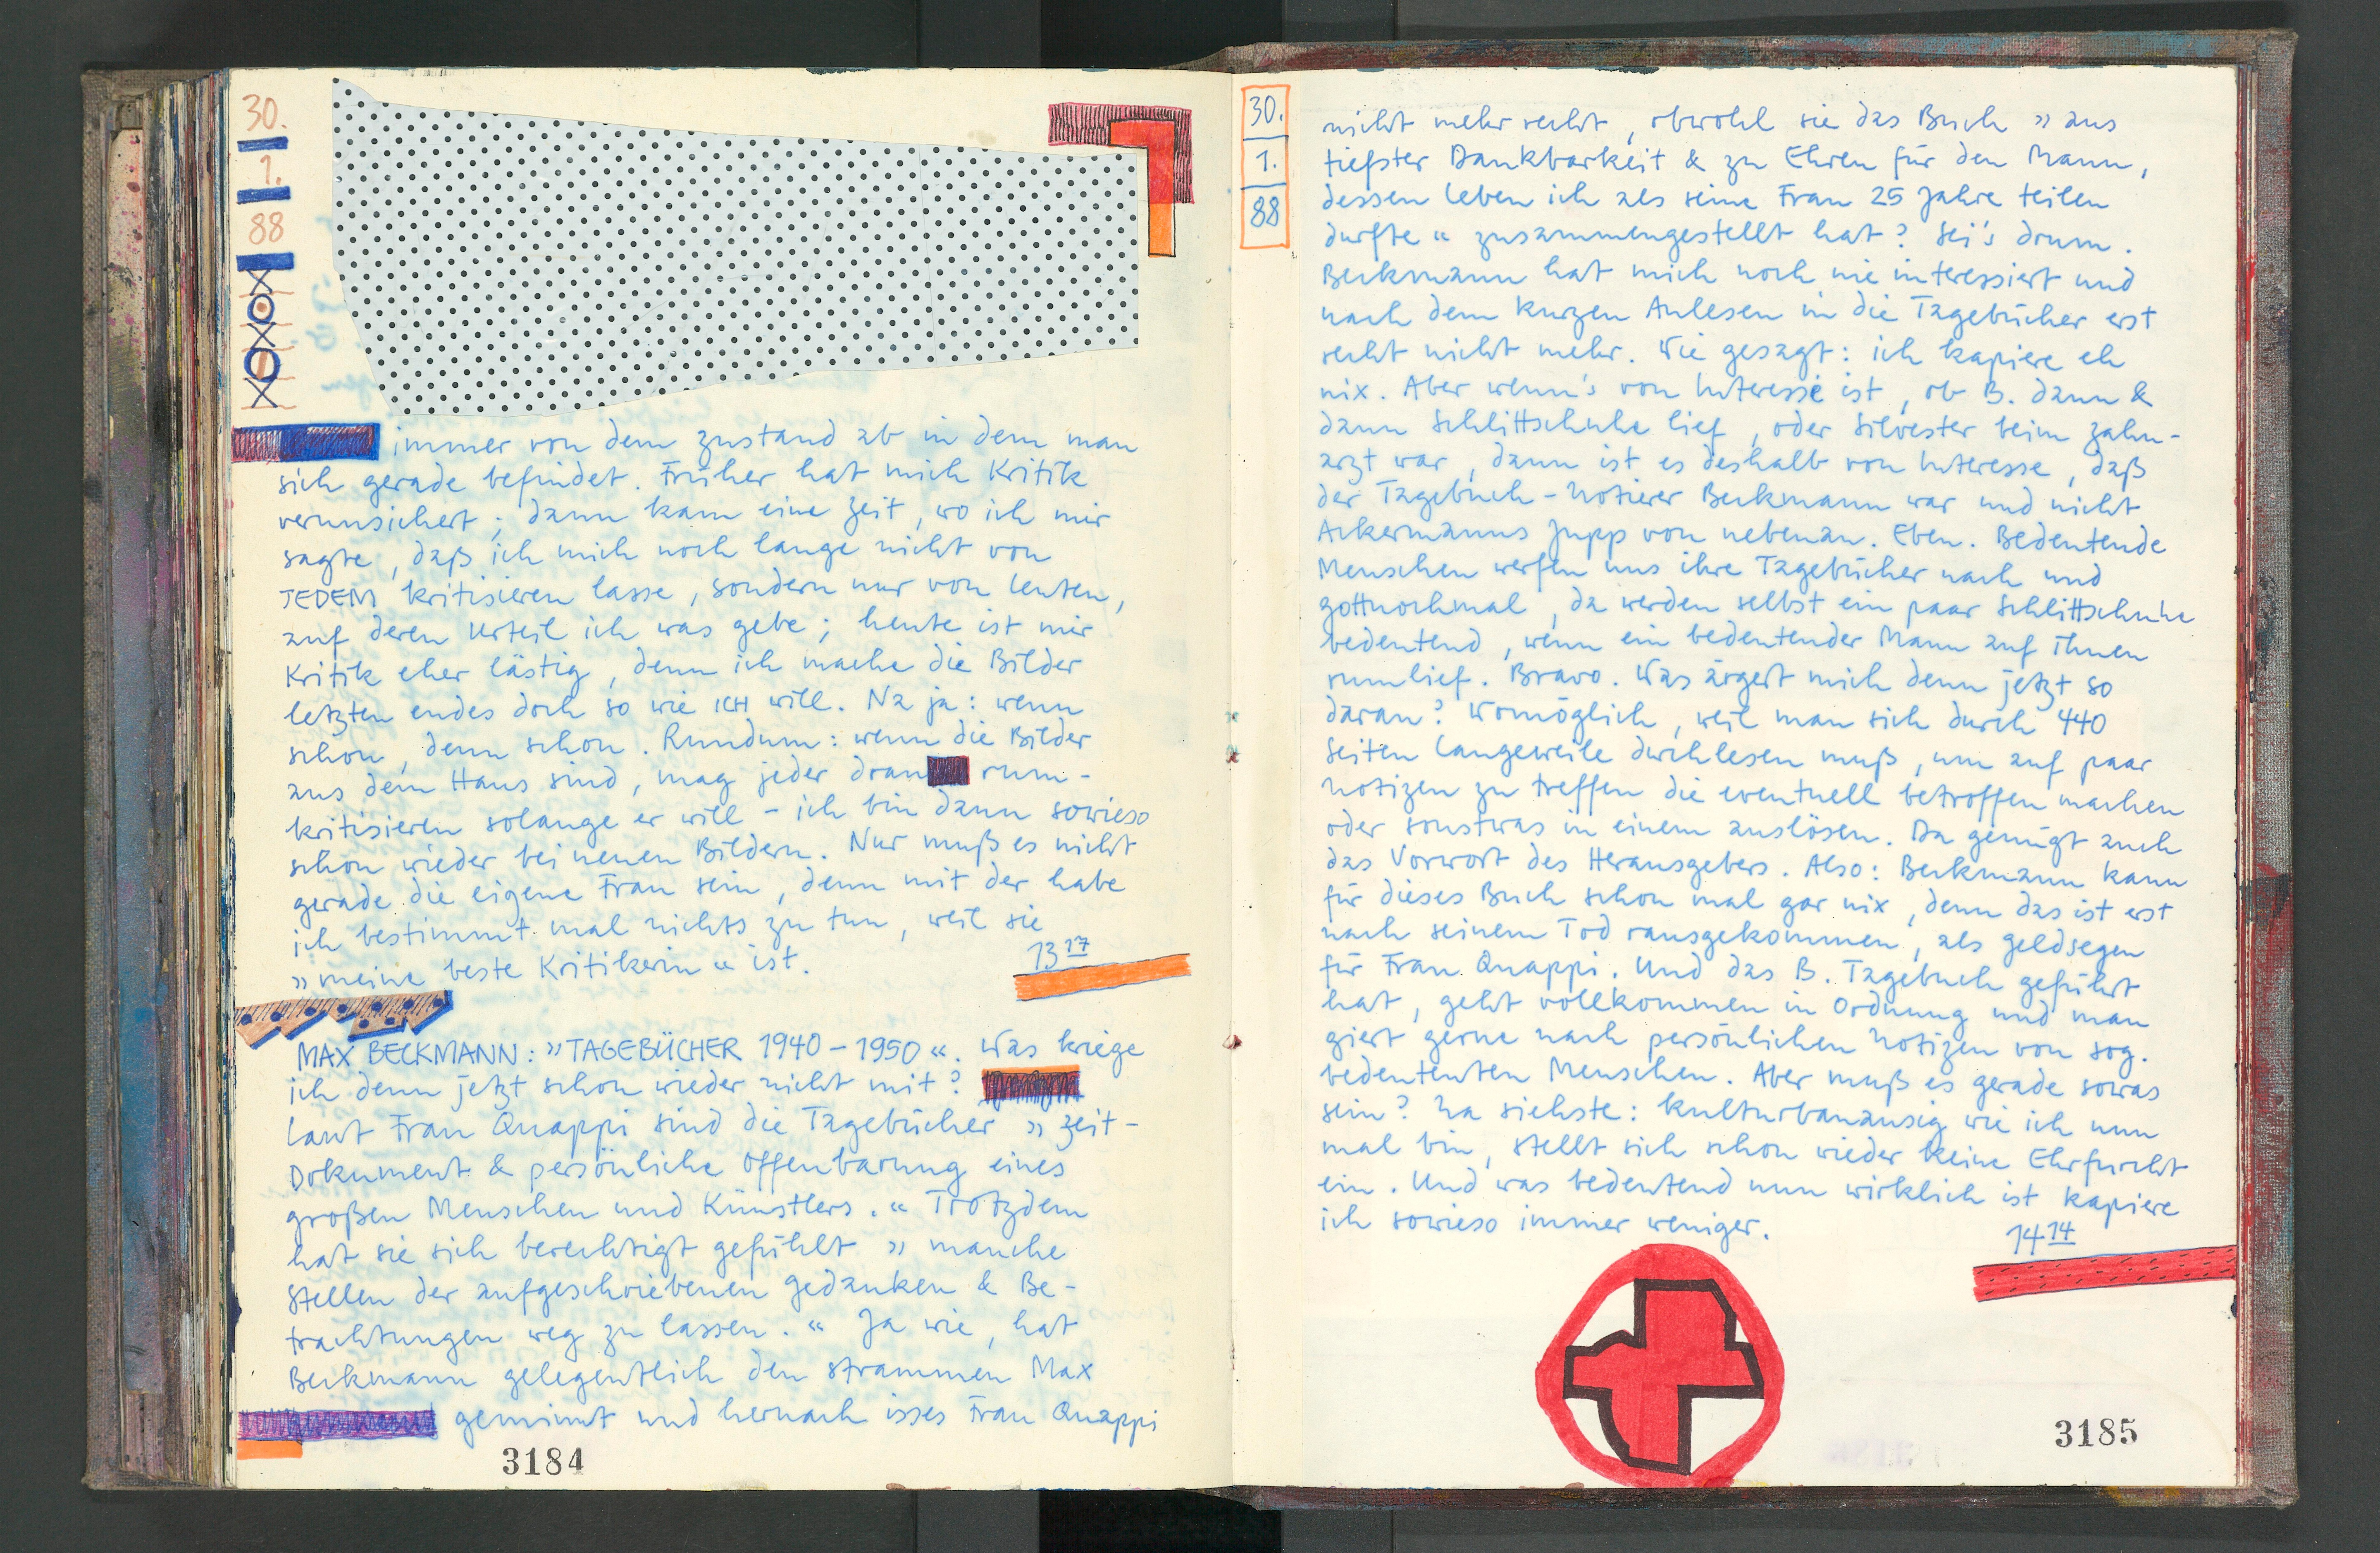 30.
1.
88
immer von dem Zustand ab in dem man
sich gerade befindet. Früher hat mich Kritik
verunsichert; dann kam eine Zeit, wo ich mir
sagte, daß ich mich noch lange nicht von
JEDEM kritisieren lasse, sondern nur von Leuten,
auf deren Urteil ich was gebe; heute ist mir
Kritik eher lästig, denn ich mache die Bilder
letzten endes doch so wie ICH will. Na ja: wenn
schon, denn schon. Rundum: wenn die Bilder
aus dem Haus sind, mag jeder dran rum-
kritisieren solange er will - ich bin dann sowieso
schon wieder bei neuen Bildern. Nur muß es nicht
gerade die eigene Frau sein, denn mit der habe
ich bestimmt mal nichts zu tun, weil sie
»meine beste Kritikerin« ist.
13 17
MAX BECKMANN: »TAGEBÜCHER 1940-1950«. Was kriege
ich denn jetzt schon wieder nicht mit?
Laut Frau Quappi sind die Tagebücher »Zeit-
Dokument & persönliche Offenbarung eines
großen Menschen und Künstlers.« Trotzdem
hat sie sich berechtigt gefühlt »manche
Stellen der aufgeschriebenen Gedanken & Be-
trachtungen weg zu lassen.« Ja wie, hat
Beckmann gelegentlich den strammen Max
gemimt und hernach isses Frau Quappi
3184
30.
1.
88
nicht mehr recht, obwohl sie das Buch »aus
tiefster Dankbarkeit & zu Ehren für den Mann,
dessen Leben ich als seine Frau 25 Jahre teilen
durfte« zusammengestellt hat? Sei's drum.
Beckmann hat mich noch nie interessiert und
nach dem kurzen Anlesen in die Tagebücher erst
recht nicht mehr. Wie gesagt: ich kapiere eh
nix. Aber wenn's von Interesse ist, ob B. dann &
dann Schlittschuhe lief, oder Silvester beim Zahn-
arzt war, dann ist es deshalb von Interesse, daß
der Tagebuch-Notierer Beckmann war und nicht
Ackermanns Jupp von nebenan. Eben. Bedeutende
Menschen werfen uns ihre Tagebücher nach und
gottnochmal, da werden selbst ein paar Schlittschuhe
bedeutend, wenn ein bedeutender Mann auf ihnen
rumlief. Bravo. Was ärgert mich denn jetzt so
daran? Womöglich, weil man sich durch 440
Seiten Langeweile durchlesen muß, um auf paar
Notizen zu treffen die eventuell betroffen machen
oder sonstwas in einem auslösen. Da genügt auch
das Vorwort des Herausgebers. Also: Beckmann kann
für dieses Buch schon mal gar nix, denn das ist erst
nach seinem Tod rausgekommen, als Geldsegen
für Frau Quappi. Und das B. Tagebuch geführt
hat, geht vollkommen in Ordnung und man
giert gerne nach persönlichen Notizen von sog.
bedeutenten Menschen. Aber muß es gerade sowas
sein? Na siehste: kulturbanausig wie ich nun
mal bin, stellt sich schon wieder keine Ehrfurcht
ein. Und was bedeutend nun wirklich ist kapiere
ich sowieso immer weniger.
14 14
3185